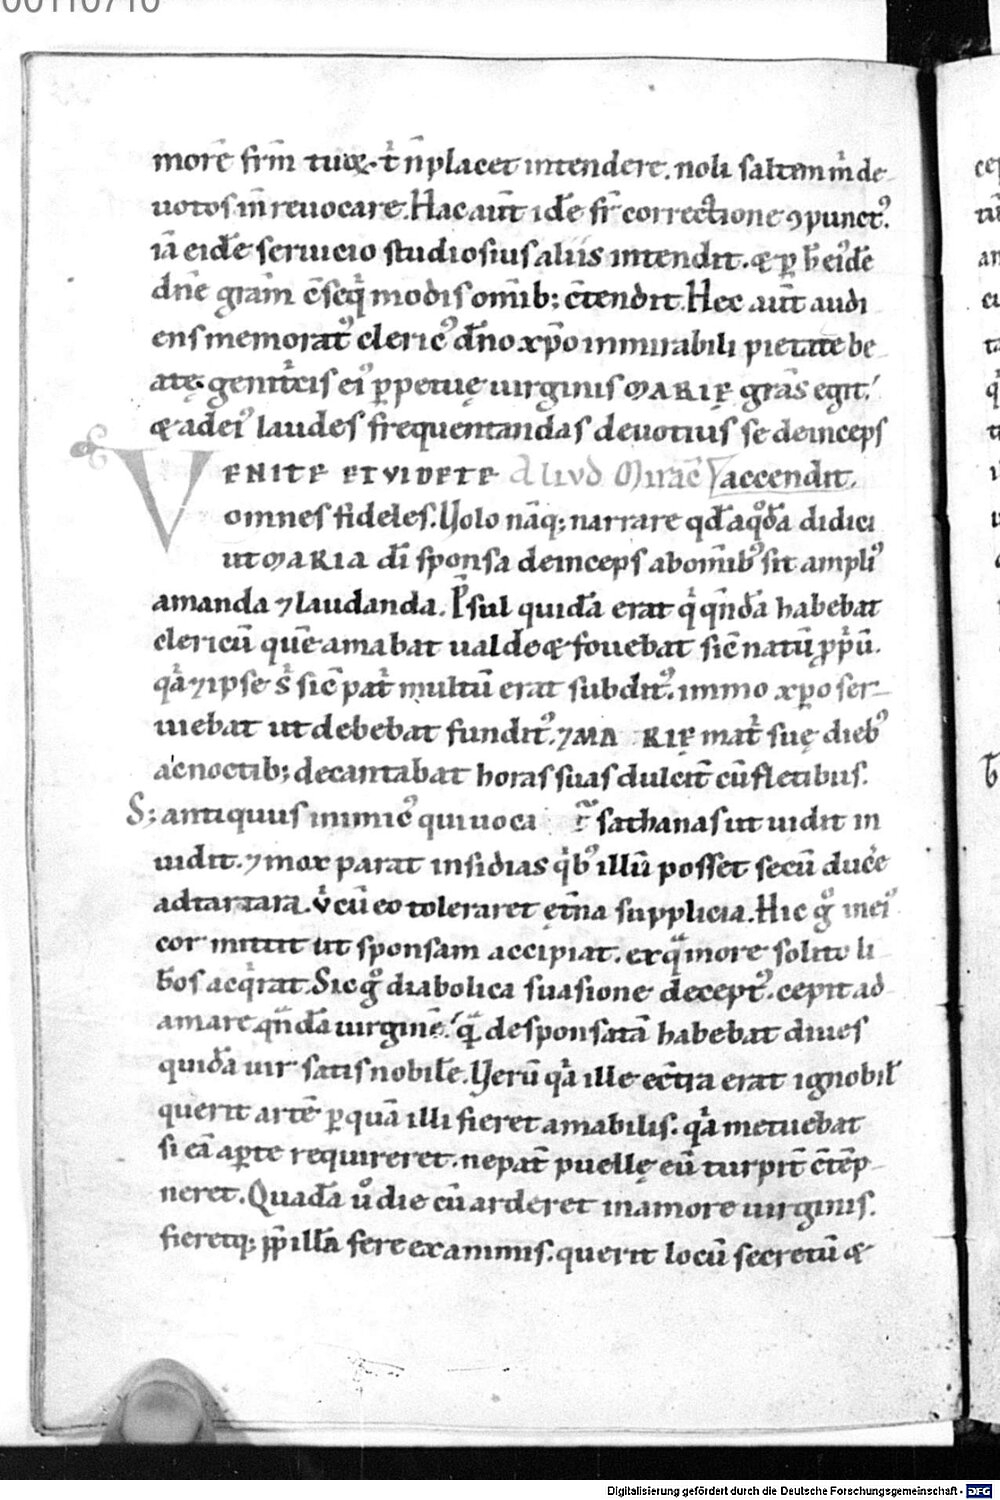 00110710
morē frm̄ tuoꝝ. t̾ n̄ placet intendere. noli saltem m̄ de
uotos in̄ reuocare. Hac aūt idē fr̄ correctione ꝯpunct᷒.
iā eidē seruicio studiosius aliis intendit. & ꝑ h̄ eidē
dn̄e grām c̄seq̾ modis om̄ib; c̄tendit. Hec aūt audi
ens memorat᷒ cleric᷒ dn̄o xp̄o inmirabili pietate be
atę genitcis ei᷒ ꝑpetuę uirginis MARIE grās egit.
& ad ei᷒ laudes frequentandas deuotius se deinceps
VENITE ET VIDETE Aliud Mirac̄ accendit.
omnes fideles. Uolo nāq; narrare qd̄ a qd̄ā didici
ut MARIA dī sponsa deinceps ab om̄ib᷒ sit ampli᷒
amanda ⁊ laudanda. P̄sul quidā erat q̾ qn̄dā habebat
clericū quē amabat ualde & fouebat sic̄ natū ꝓp̾ū.
qā ⁊ ipse s̾ sic̄ pat̾ multū erat subdit᷒. immo xp̄o ser
uiebat ut debebat fundit᷒. ⁊ MARIĘ mat̾ suę dieb᷒
ac noctib; decantabat horas suas dulcit̄ cū fletibus.
S; antiquus inimic᷒ qui uoca r̄ sathanas ut uidit in
uidit. ⁊ mox parat insidias q̾b᷒ illū posset secū duc̄e
ad tartara. u̾ cū eo toleraret ęt̄na supplicia. Hic g̊ in ei᷒
cor mittit ut sponsam accipiat. ex qua more solito li
b̄os acq̾rat. Sic g̊ diabolica suasione decept᷒. cepit ad
amare qn̄dā uirginē. q̄ desponsatā habebat diues
quidā uir satis nobilē. Uerū qā ille ec̄tra erat ignobil̄
querit artē ꝑ quā illi fieret amabilis. qā metuebat
si eā aꝑte requireret. ne pat̄ puellę eū turpit̄ c̄tēp
neret. Quadā ů die cū arderet in amore uirginis.
fieretq; ꝓp̄ illā fere exanimis. querit locū secretū &
Digitalisierung gefördert durch die Deutsche Forschungsgemeinschaft - DFG